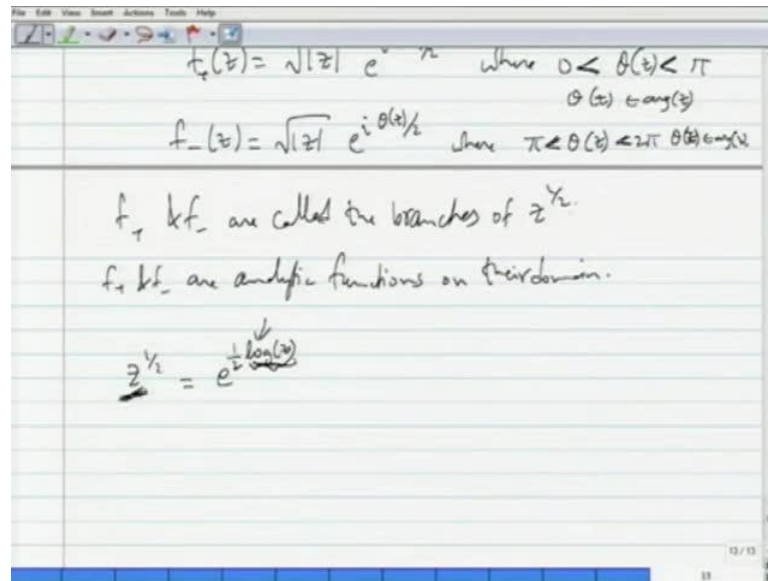 File Edit View Insert Actions Tools Help
f₊(z) = √|z| e^{i /2} where 0 < θ(z) < π
θ(z) ∈ arg(z)
f₋(z) = √|z| e^{iθ(z)/2} where π < θ(z) < 2π θ(z) ∈ arg(z)
f₊ & f₋ are called the branches of z^{1/2}.
f₊ & f₋ are analytic functions on their domain.
z^{1/2} = e^{1/2 log(z)}
13/13